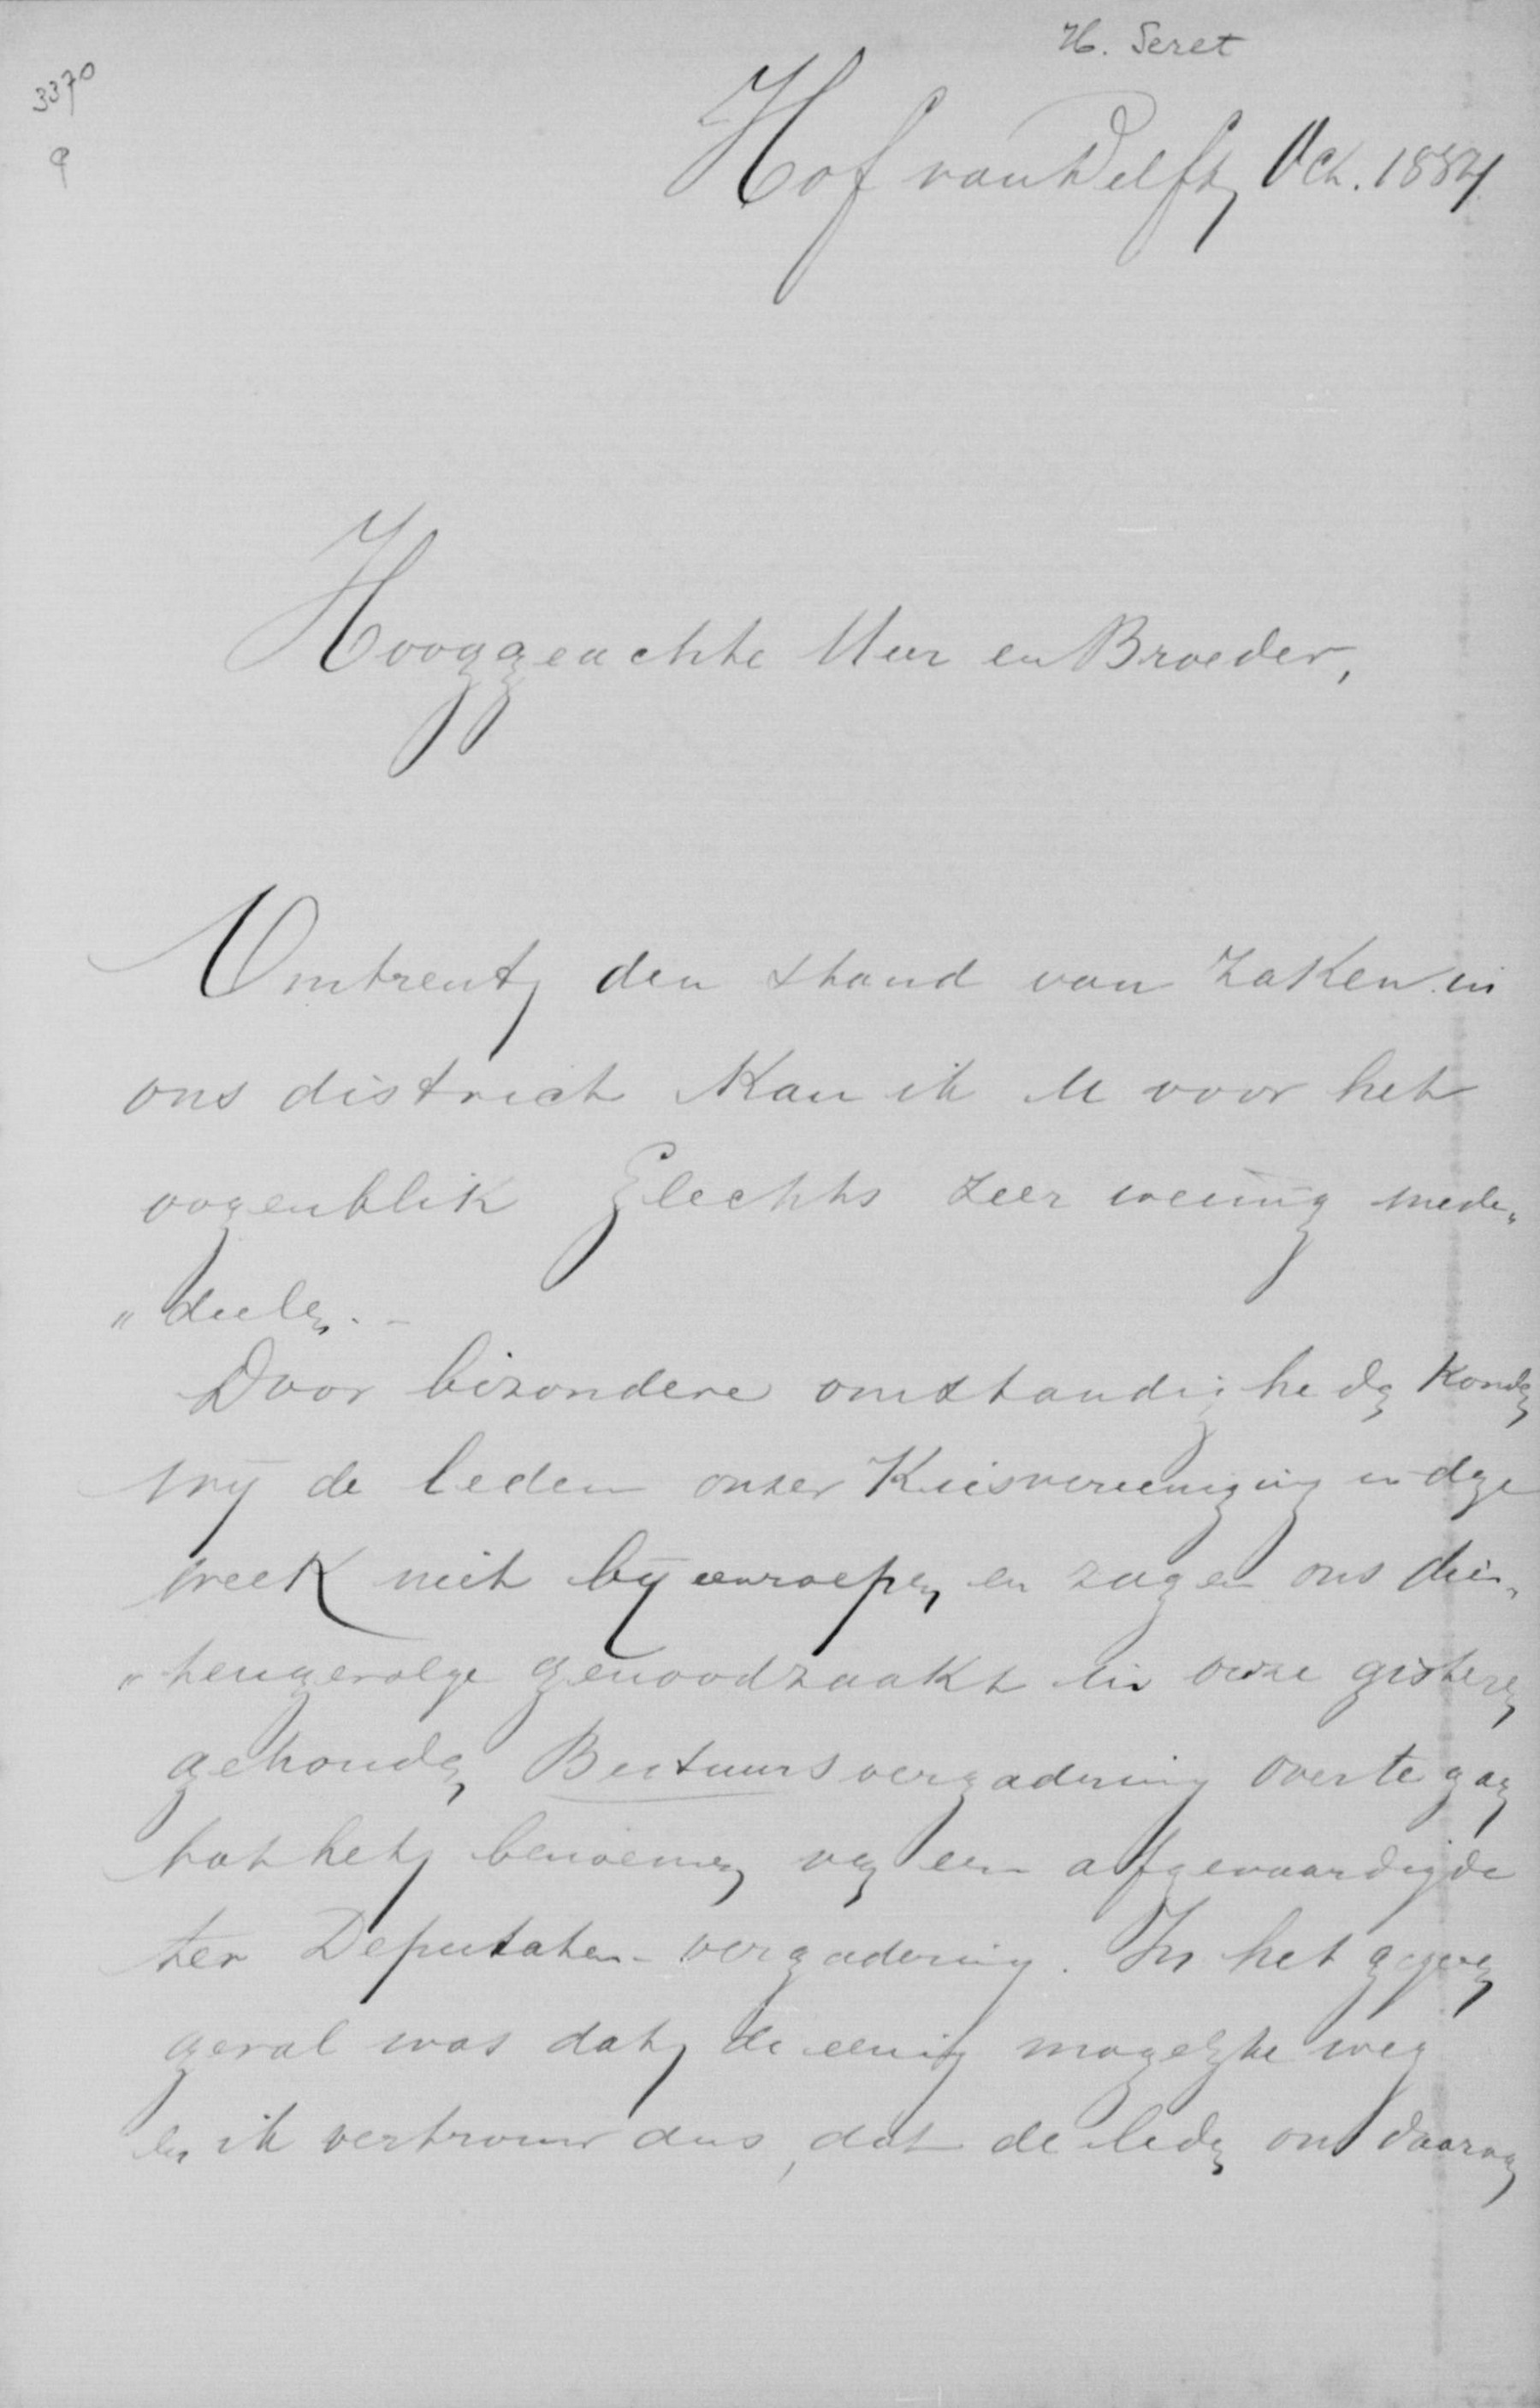 H. Seret
3370
9
Hof van Delft, Oct. 1884
Hooggeachte Heer en Broeder,
Omtrent den stand van zaken in
ons district kan ik U voor het
oogenblik slechts zeer weinig mede„
„deelen. –
Door bizondere omstandigheden konden
wij de leden onzer Kiesvereeniging in deze
week niet bijeenroepen en zagen ons dien„
„tengevolge genoodzaakt in onze gisteren
gehouden Bestuursvergadering over te gaan
tot het benoemen van een afgevaardigde
ter Deputaten-vergadering. In het gegeven
geval was dat de eenig mogelijke weg
en ik vertrouw dus, dat de leden ons daarvan